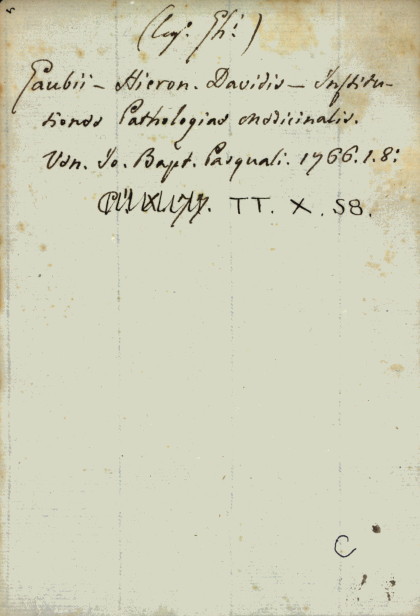 Gaubii – Hieron. Davidis – Institu-
tiones Pathologiae medicinalis.
Ven. Jo. Bapt. Pasquali. 1766. 1. 8:
TT. X. 58.
C